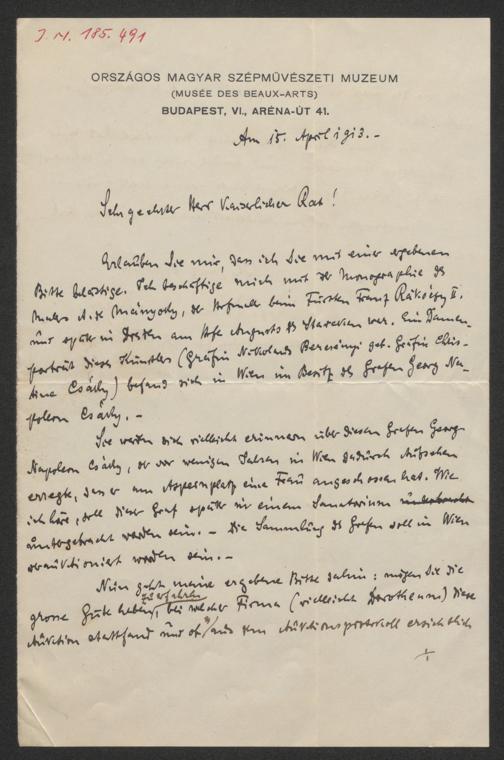 J. N. 185.491
ORSZÁGOS MAGYAR SZÉPMŰVÉSZETI MUZEUM
(MUSÉE DES BEAUX-ARTS)
BUDAPEST, VI., ARÉNA-ÚT 41.
Am 15. April 1913.-
Sehr geehrter Herr Kaiserlicher Rat!
Erlauben Sie mir, dass ich Sie mit einer ergebenen
Bitte belästige. Ich beschäftige mich mit der Monographie des
Malers A. de Mányoky, der Hofmaler beim Fürsten Franz Rákóczy II.
und später in Dresden am Hofe Augusts des Starken war. Ein Damen-
porträt dieses Künstlers (Gräfin Nikolaus Bercsényi geb. Gräfin Chris-
tine Csáky) befand sich in Wien im Besitz des Grafen Georg Na-
poleon Csáky.-
Sie werden sich vielleicht erinnern über diesen Grafen Georg
Napoleon Csáky, der vor wenigen Jahren in Wien dadurch Aufsehen
erregte, dass er am Aspernplatz eine Frau angeschossen hat. Wie
ich höre, soll dieser Graf später in einem Sanatorium
untergebracht worden sein.- Die Sammlung des Grafen soll in Wien
verauktioniert worden sein.-
Nun geht meine ergebene Bitte dahin: mögen Sie die
grosse Güte haben, zu erfahren bei welcher Firma (vielleicht Dorotheum) diese
Auktion stattfand und ob aus dem Auktionsprotokoll ersichtlich